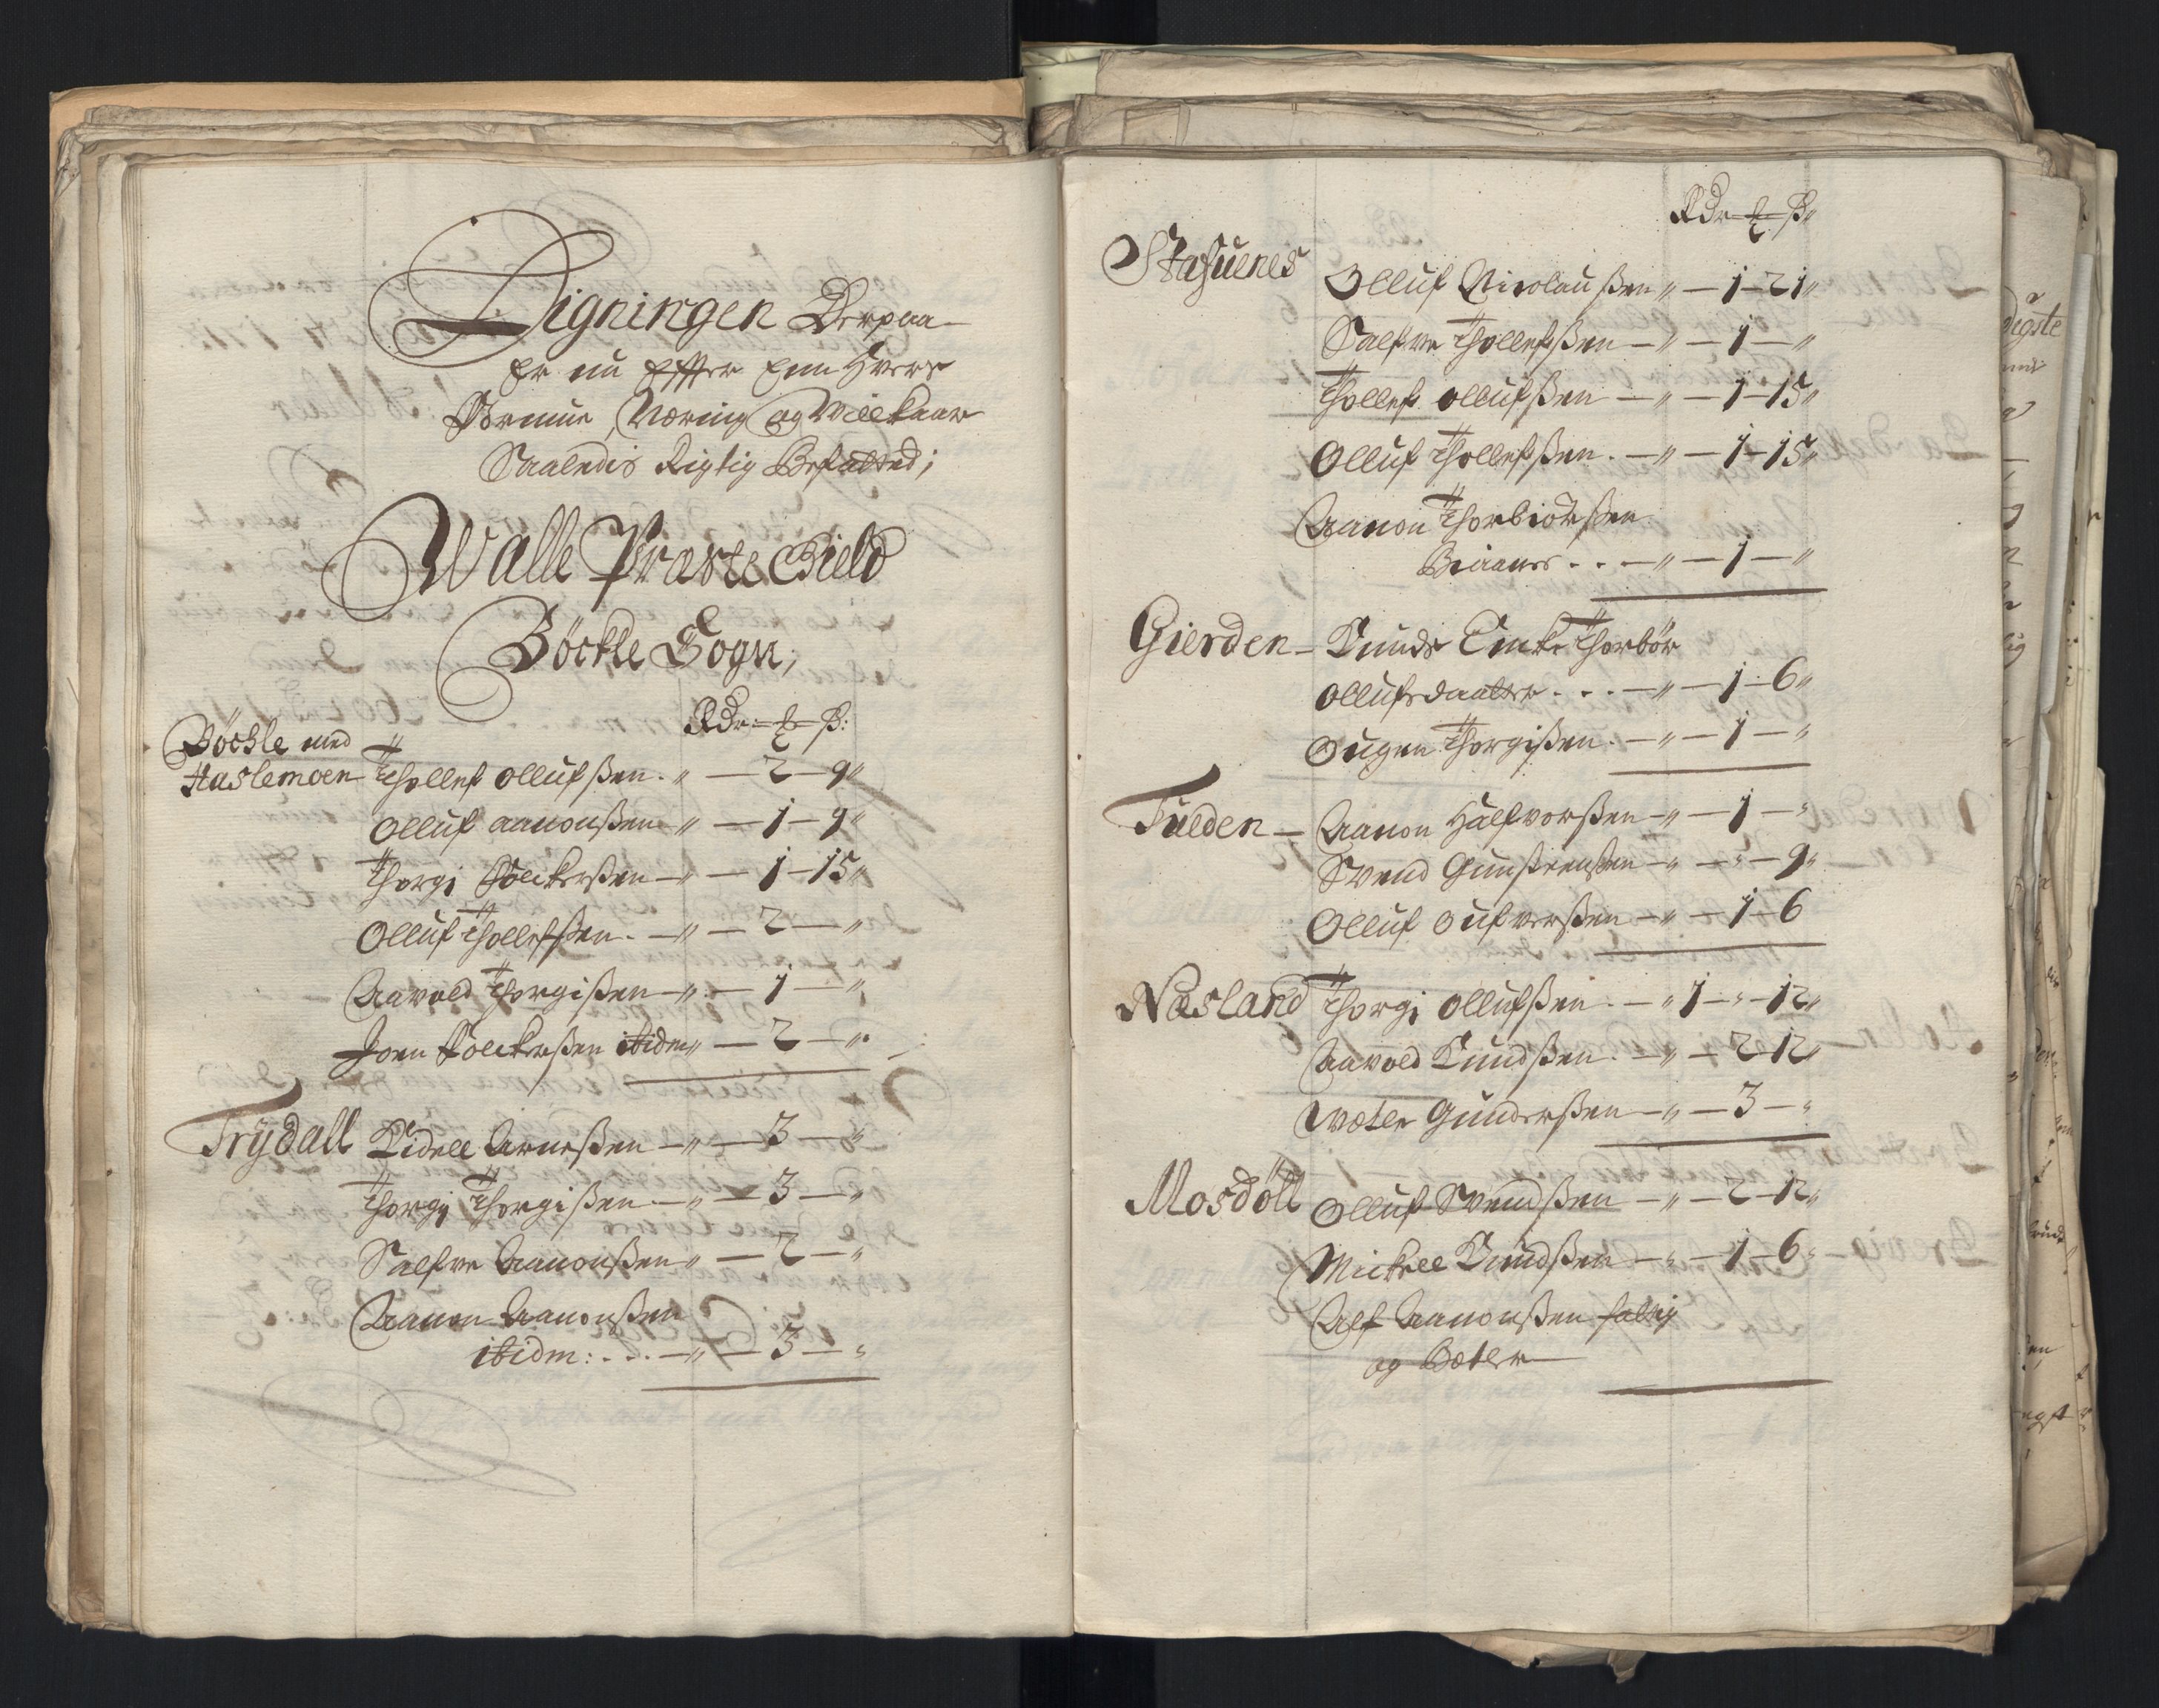 Ligningen Derpaa
Er nu Effter Enn Hvers
Formue, Næring og Willkaar
Saaledis Rigtig Befatted;
Walle Præste Gield
Böckle Sogn;
Rdr: ß:
Böckle med
Haslemoen Thollef Ollufßen. " — 2 — 9"
Olluf Aanonßen " — 1 — 9"
Thorgi Folckerßen — " — 1 — 15"
Olluf Thollefßen. — " — 2 — "
Aavold Thorgißen — " — 1 — "
Joen Folckerßen ibidm " — 2 — "
Trÿdall Kidell Arneßen — " — 3 — "
Thorgi Thorgißen — " — 3 — "
Salfve Aanonßen " — 2 — "
Aanon Aanonßen
ibidm: . . . — " — 3 — "
Rdr ß"
Stafuenes
Olluf Nicolaußen " — 1 — 21"
Salfve Thollefßen — " — 1 — "
Thollef Ollufßen — " — 1 — 15"
Olluf Thollefßen. — " — 1 — 15"
Aanon Thorbiörßen
. . . — " — 1 — "
Gierden — Knuds Encke Thorbör
Ollufsdaatter. . . . — " — 1 — 6"
Ougen Thorgißen. — " — 1 — "
Tuelden — Aanon Halfvorßen — " — 1 — "
Svend Gunstenßen — " — " — 9"
Olluf Oufverßen — " — 1 — 6
Næsland Thorgi Ollufßen. — " 1 — " — 12"
Aavold Knudßen. — " — 2 — 12"
Wetle Gunderßen — " — 3 — "
Mosdöll Olluf Svendßen — " — 2 — 12"
Mickell Knudßen — " — 1 — 6"
Alf Aanonßen fattig
og Betler